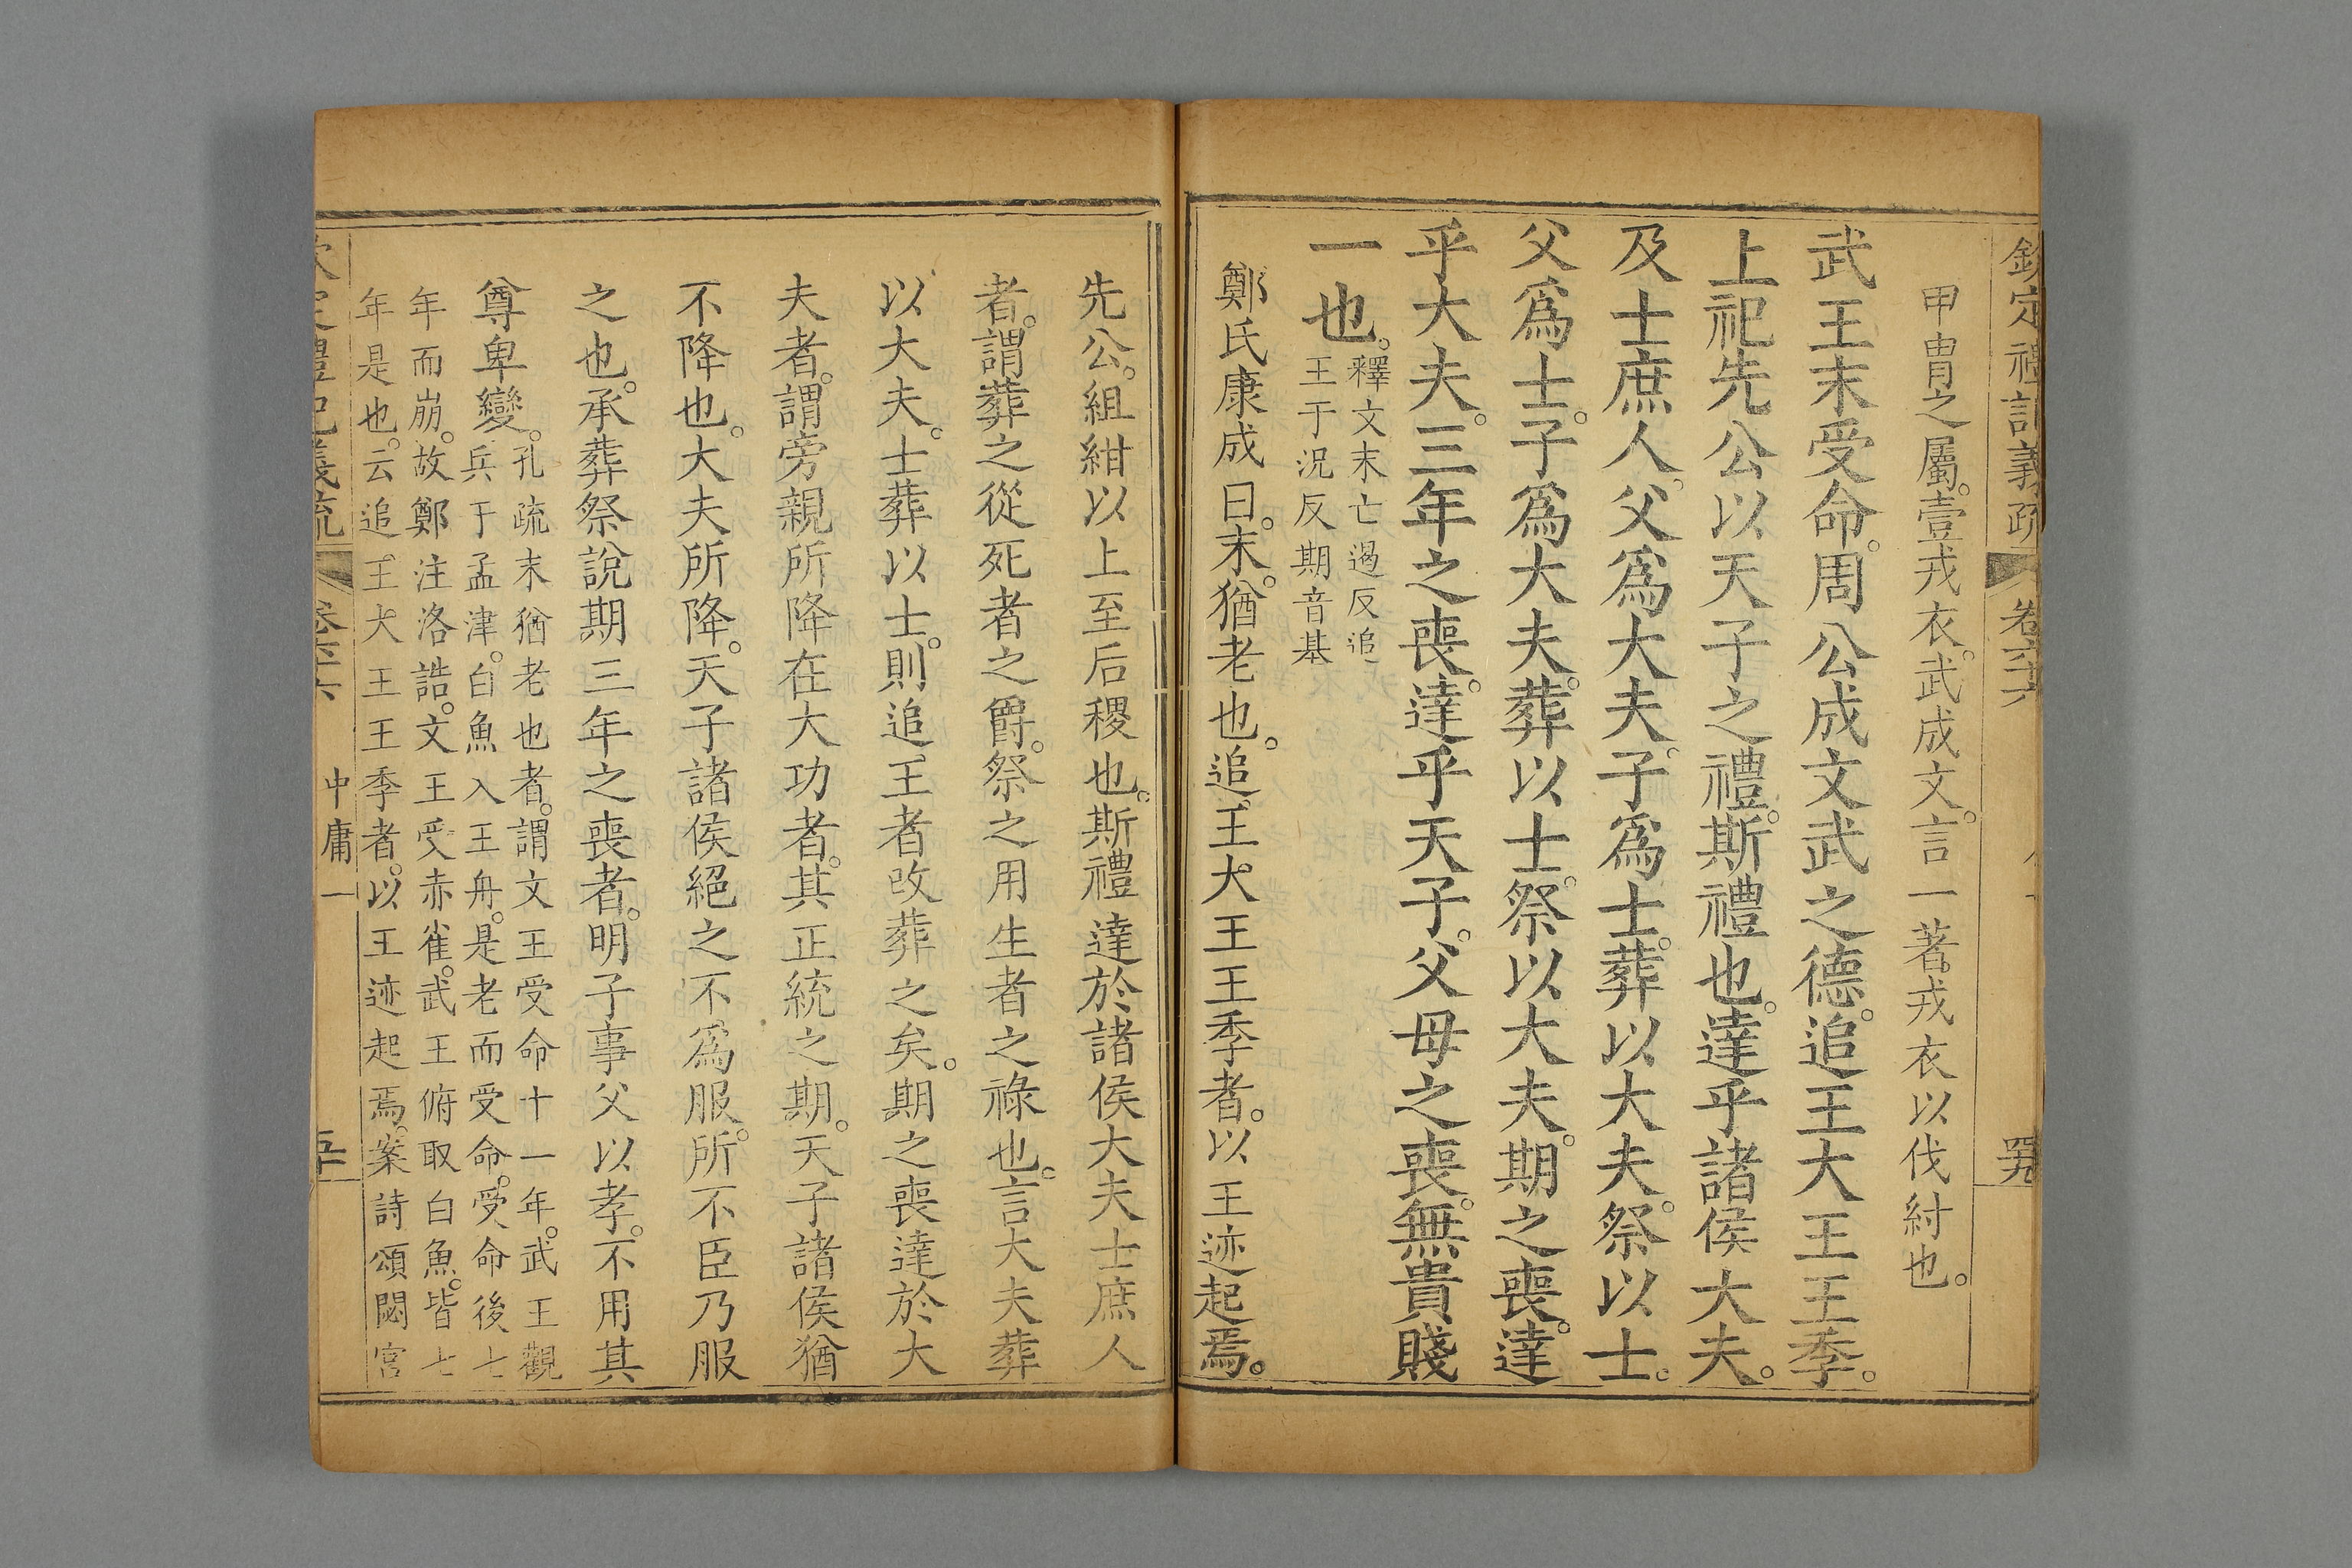 欽定禮記義疏 卷六十六 罒九
甲冑之屬。壹戎衣。武成文。言一著戎衣以伐紂也。
武王末受命。周公成文武之德。追王大王王季。
上祀先公以天子之禮。斯禮也。達乎諸侯大夫。
及士庶人。父爲大夫。子爲士。葬以大夫。祭以士。
父爲士。子爲大夫。葬以士。祭以大夫。期之喪。達
乎大夫。三年之喪。達乎天子。父母之喪。無貴賤
一也。
釋文末亡遏反追
王于況反期音基
鄭氏康成曰。末。猶老也。追王大王王季者。以王迹起焉。
先公。組紺以上至后稷也。斯禮達於諸侯大夫士庶人
者。謂葬之從死者之爵。祭之用生者之祿也。言大夫葬
以大夫。士葬以士。則追王者改葬之矣。期之喪達於大
夫者。謂旁親所降在大功者。其正統之期。天子諸侯猶
不降也。大夫所降。天子諸侯絕之不爲服。所不臣乃服
之也。承葬祭說期三年之喪者。明子事父以孝。不用其
尊卑變。
孔疏末猶老也者。謂文王受命十一年。武王觀
兵于孟津。白魚入王舟。是老而受命。受命後七
年而崩。故鄭注洛誥。文王受赤雀。武王俯取白魚。皆七
年是也。云追王大王王季者。以王迹起焉。案詩頌閟宮
欽定禮記義疏 卷六十六 中庸一 五十